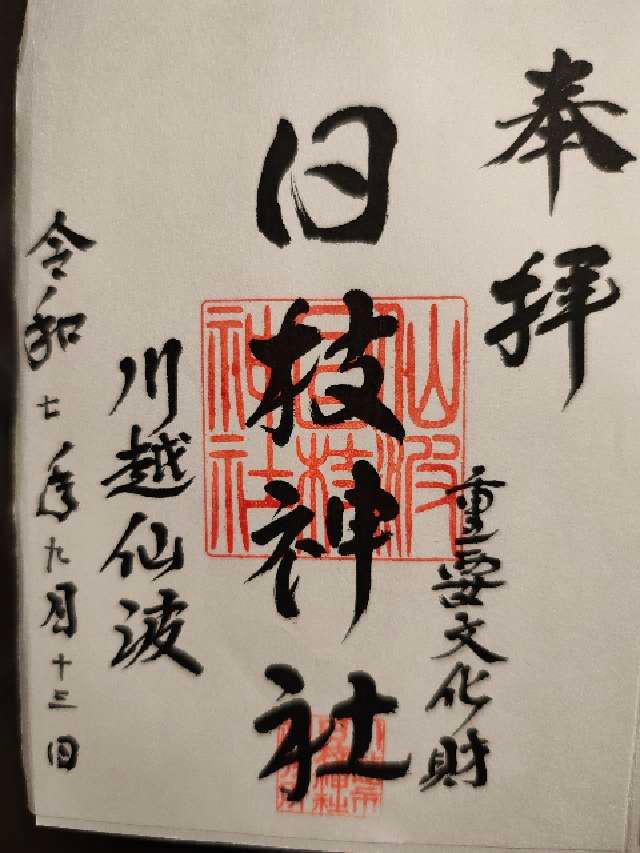 奉拝
重要文化財
日枝神社
仙波
日枝
神社
川越仙波
令和七年九月十三日